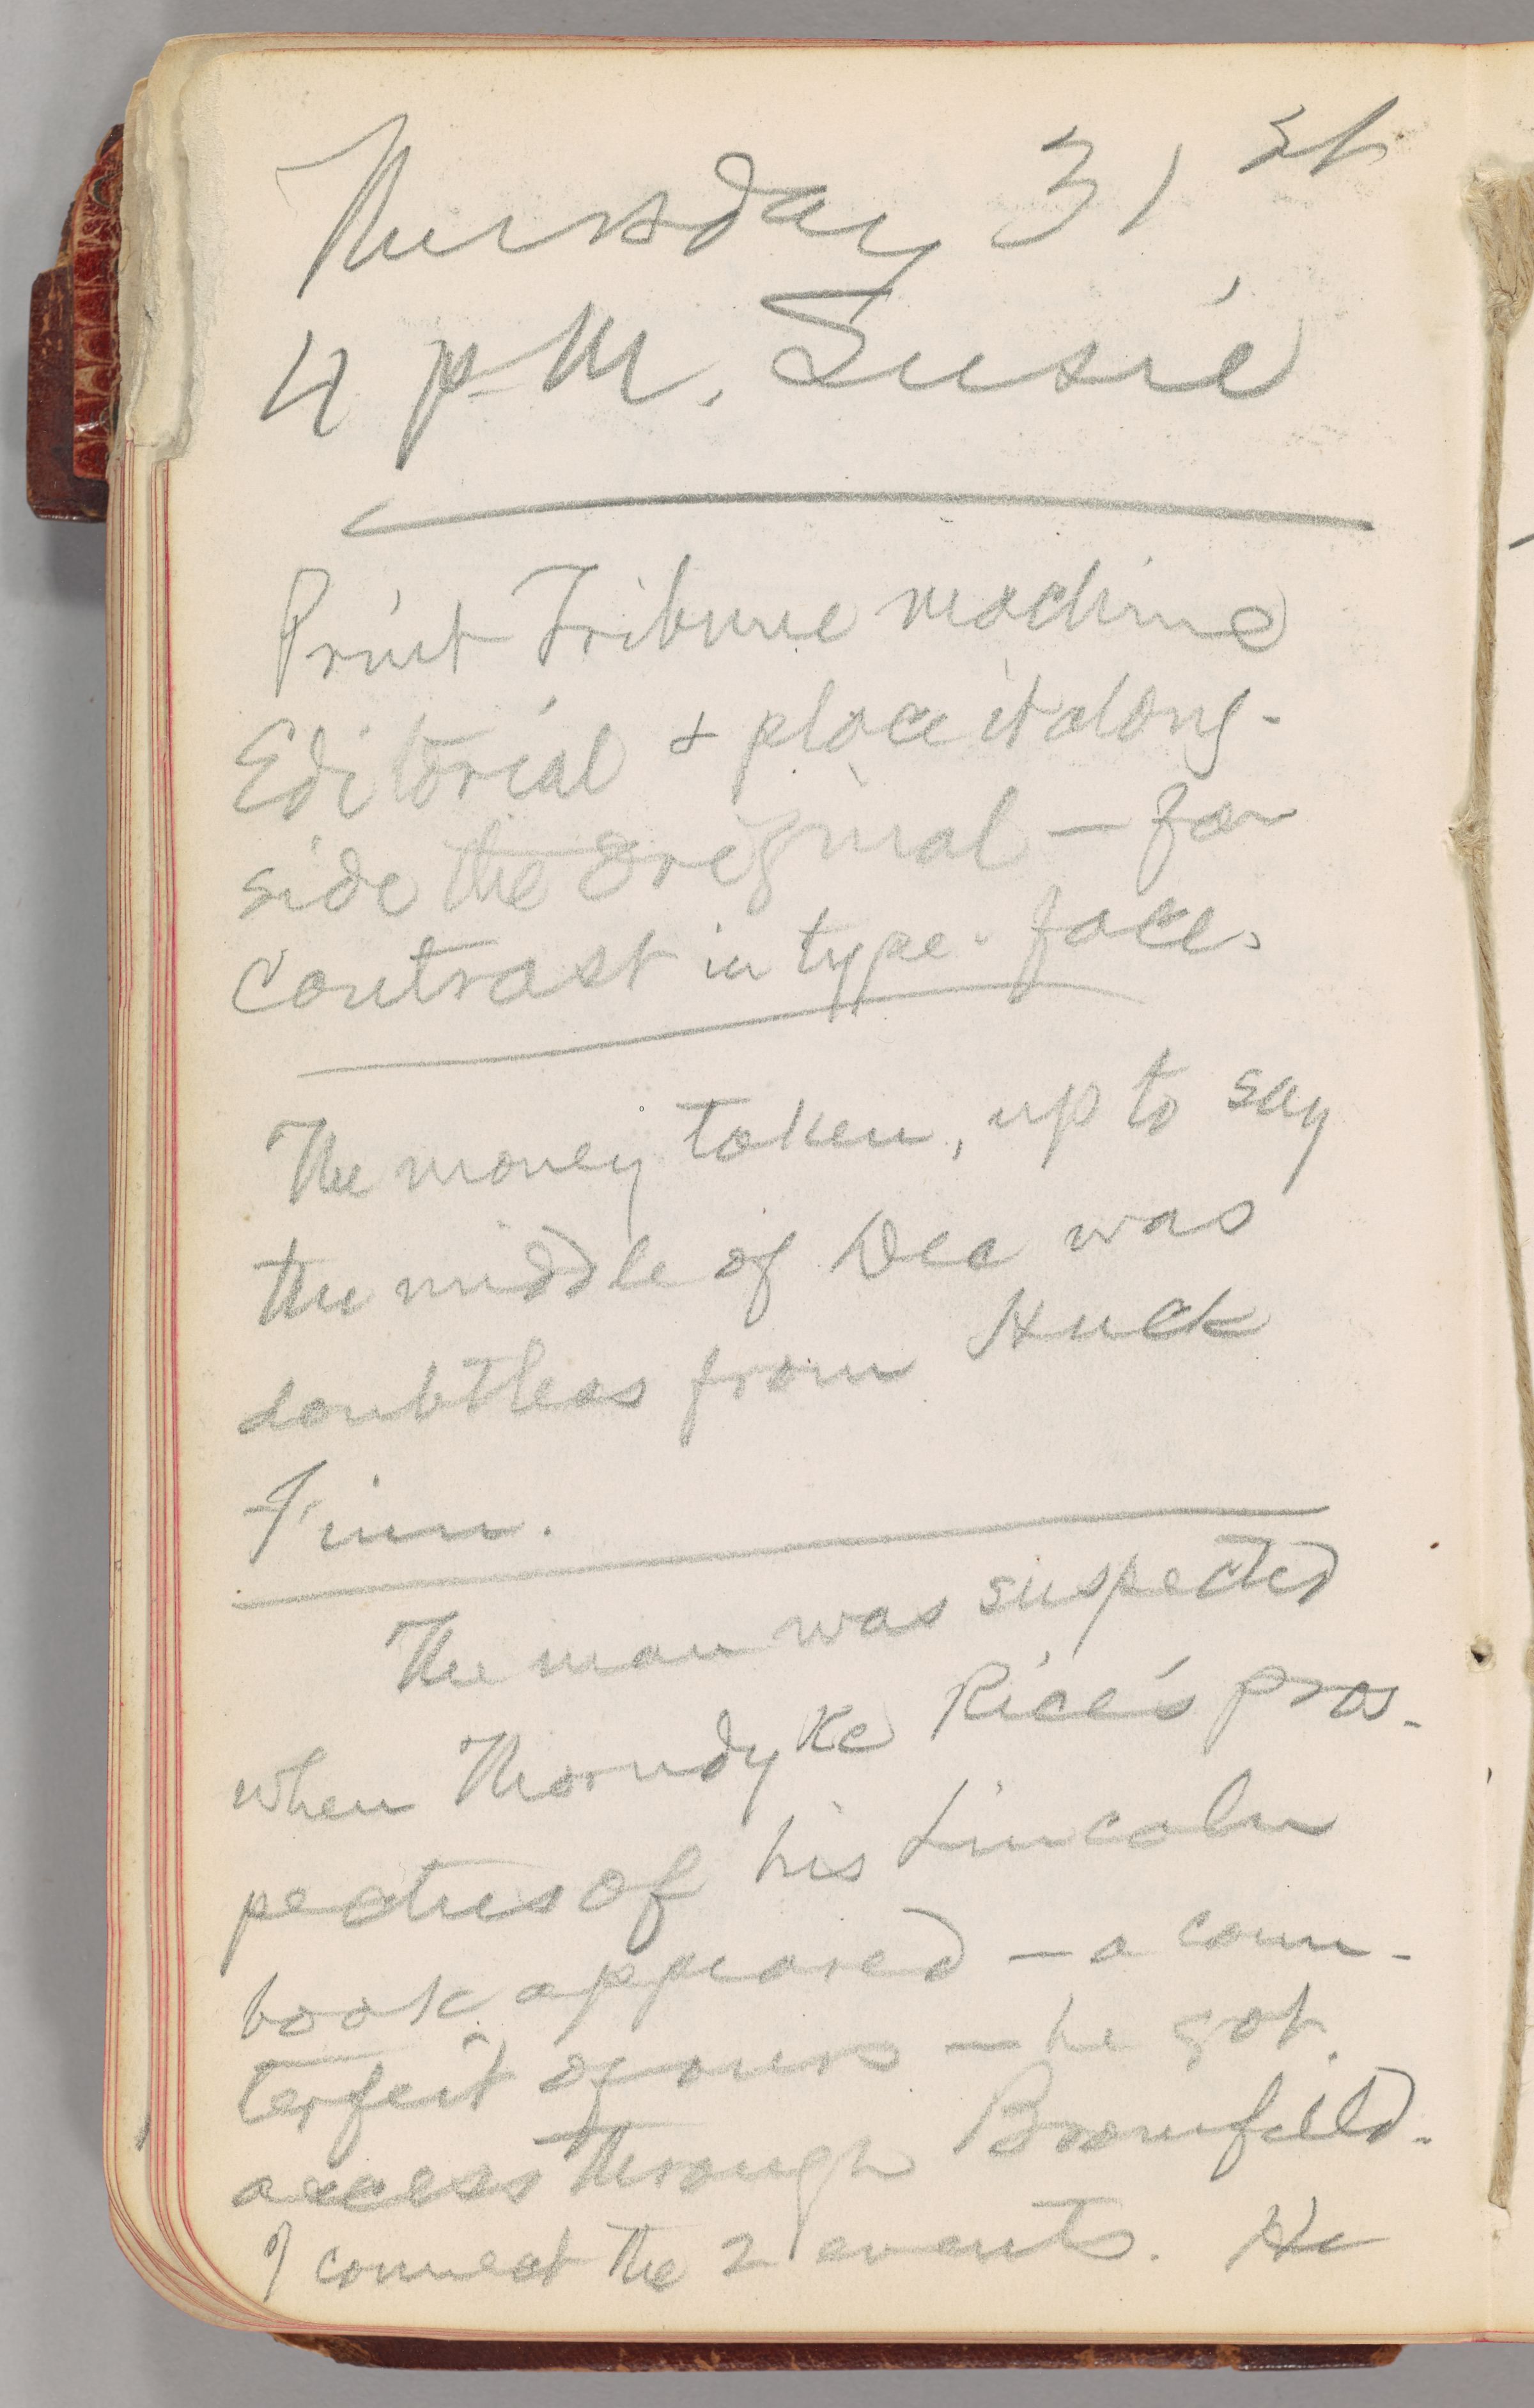 Thursday 31st
4 p.M. Susie
Print Tribune machine
Editorial & place it along-
side the original — for
contrast in type-face.
The money taken, up to say
the middle of Dec was
doubtless from Huck
Finn.
The man was suspected
when Thorndyke Rice's pros-
pectus of his Lincoln
book appeared — a coun-
terfeit of ours — he got
access through Bromfield.
I connect the 2 events. He